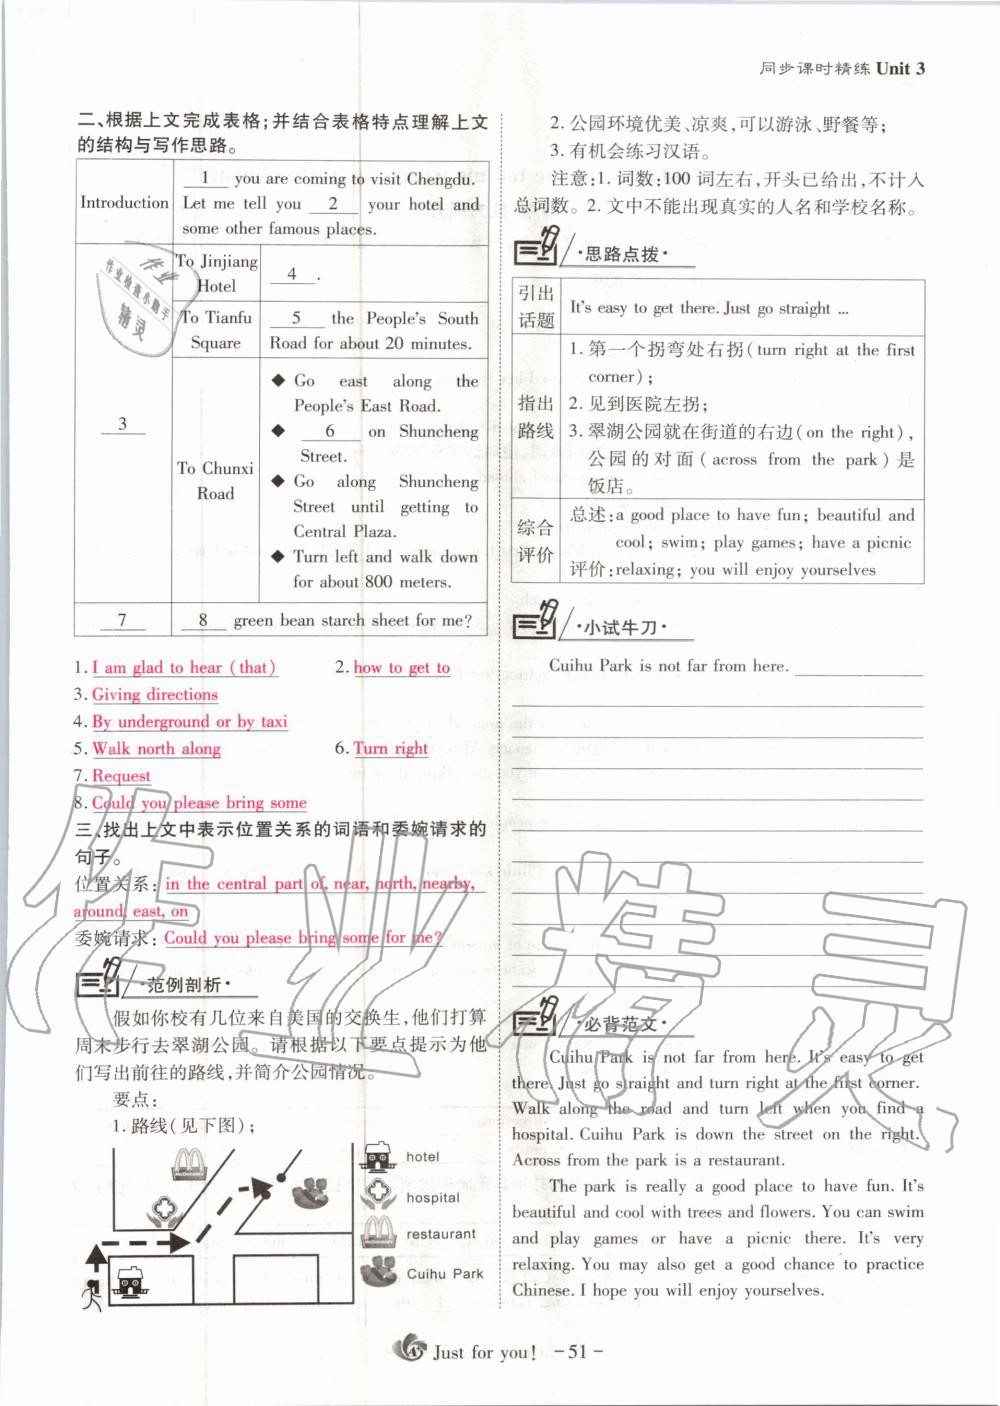 同步课时精练 Unit 3
二、根据上文完成表格;并结合表格特点理解上文
的结构与写作思路。
Introduction
1 you are coming to visit Chengdu.
Let me tell you 2 your hotel and
some other famous places.
3
To Jinjiang
Hotel
4 .
To Tianfu
Square
5 the People's South
Road for about 20 minutes.
To Chunxi
Road
◆ Go east along the
People's East Road.
◆ 6 on Shuncheng
Street.
◆ Go along Shuncheng
Street until getting to
Central Plaza.
◆ Turn left and walk down
for about 800 meters.
7
8 green bean starch sheet for me?
1. I am glad to hear (that) 2. how to get to
3. Giving directions
4. By underground or by taxi
5. Walk north along 6. Turn right
7. Request
8. Could you please bring some
三、找出上文中表示位置关系的词语和委婉请求的
句子。
位置关系: in the central part of, near, north, nearby,
around, east, on
委婉请求: Could you please bring some for me?
·范例剖析·
假如你校有几位来自美国的交换生,他们打算
周末步行去翠湖公园。请根据以下要点提示为他
们写出前往的路线,并简介公园情况。
要点:
1. 路线(见下图);
McDonald's
hotel
hospital
restaurant
Cuihu Park
2. 公园环境优美、凉爽,可以游泳、野餐等;
3. 有机会练习汉语。
注意:1. 词数:100 词左右,开头已给出,不计入
总词数。2. 文中不能出现真实的人名和学校名称。
·思路点拨·
引出
话题
It's easy to get there. Just go straight ...
指出
路线
1. 第一个拐弯处右拐(turn right at the first
corner);
2. 见到医院左拐;
3. 翠湖公园就在街道的右边(on the right),
公园的对面(across from the park)是
饭店。
综合
评价
总述:a good place to have fun; beautiful and
cool; swim; play games; have a picnic
评价:relaxing; you will enjoy yourselves
·小试牛刀·
Cuihu Park is not far from here.
·必背范文·
Cuihu Park is not far from here. It's easy to get
there. Just go straight and turn right at the first corner.
Walk along the road and turn left when you find a
hospital. Cuihu Park is down the street on the right.
Across from the park is a restaurant.
The park is really a good place to have fun. It's
beautiful and cool with trees and flowers. You can swim
and play games or have a picnic there. It's very
relaxing. You may also get a good chance to practice
Chinese. I hope you will enjoy yourselves.
Just for you! -51-
作业
作业检查小助手
精灵
作业精灵